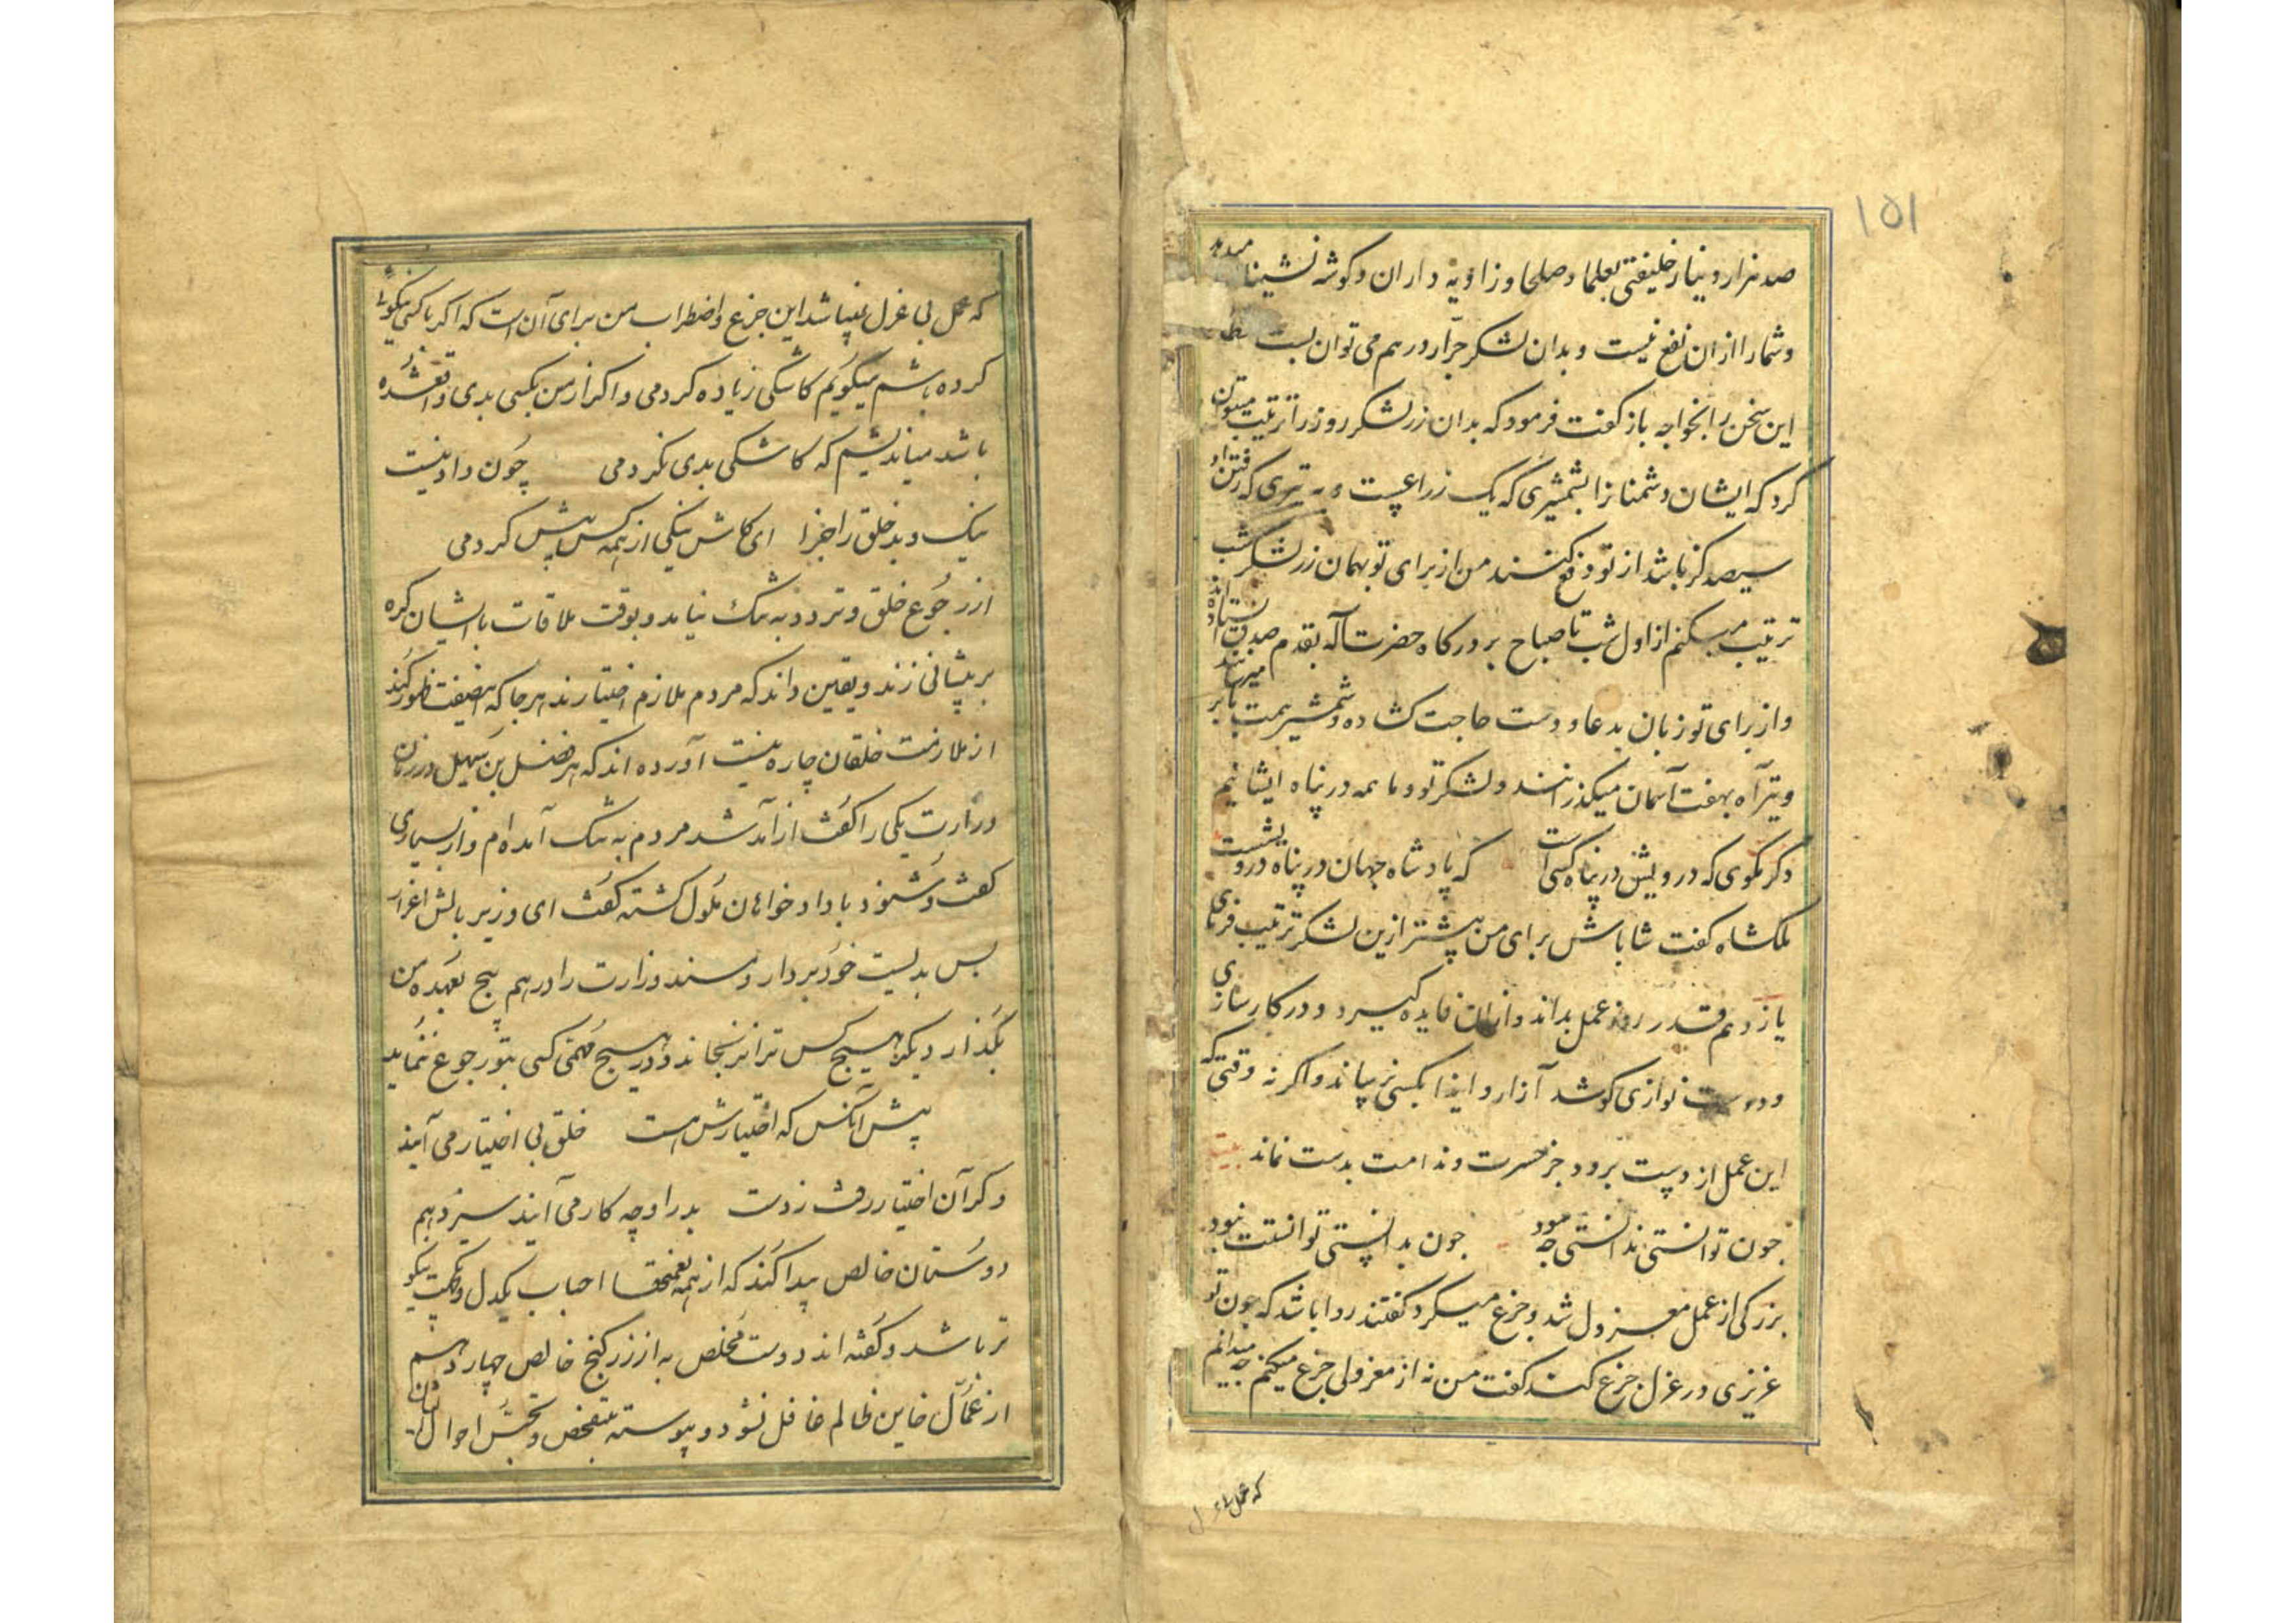 ۱۵۱
صد هزار دینار خلیفتی بعلما و صلحا و زاویه داران و کوشه نشینان میدهد
و شما را ازان نفع نیست و بدان لشکر جرّار در هم می توان بست
این سخن را بخواجه باز کفت فرمود که بدان زر لشکر روز را ترتیب میتوان
کرد که ایشان دشمنانرا بشمشیری که یک زراعیست و به تیری که رفتن او
سیصد کز باشد از تو دفع کنند من از برای تو بهمان زر لشکر شب
ترتیب میکنم از اول شب تا صباح بر درکاه حضرت آله بقدم صدق ایستاده اند
و از برای تو زبان بدعا و دست حاجت کشاده و شمشیر همت بابر میرسانند
و تیر آه بهفت آسمان میکذرانند و لشکر تو و ما همه در پناه ایشانیم
دکر مکوی که درویش در پناه کسی است که پادشاه جهان در پناه درویشست
ملکشاه کفت شاباش برای من بیشتر ازین لشکر ترتیب فرمای
یازدهم قدر روز عمل بداند و ازان فایده کیرد و در کارسازی
و دوست نوازی کوشد آزار و ایذا بکسی نرساند و اکر نه وقتی که
این عمل از دست برود جز حسرت و ندامت بدست نماند بیت
جون توانستی ندانستی چه سود جون بدانستی توانستت نبود
بزرکی از عمل معزول شد و جزع میکرد کفتند روا باشد که چون تو
عزیزی در عزل جزع کند کفت من نه از معزولی جزع میکنم چه میدانم
که عمل بی عزل
که عمل بی عزل نمیباشد این جزع و اضطراب من برای آن است که اکر با کسی نیکویی
کرده باشم میکویم کاشکی زیاده کردمی و اکر از من بکسی بدی واقع شده
باشد میاندیشم که کاشکی بدی نکردمی چون داد نیست
نیک و بد خلق را جزا ای کاش نیکی از همه کس بیش کردمی
از رجوع خلق و تردد به تنک نیاید و بوقت ملاقات با ایشان کره
بر پیشانی نزند و یقین داند که مردم ملازم اختیارند هر جا که این صفت ظهور کند
از ملازمت خلقان چاره نیست آورده اند که فضل بن سهیل در زمان
وزارت یکی را کفت از آمد شد مردم به تنک آمده ام و از بسیاری
کفت و شنود با دادخواهان ملول کشته کفت ای وزیر بالش اعزاز
بس بدست خود بردار و مسند وزارت را در هم پیچ بعهده من
بکذار دیکر هیچ کس ترا نرنجاند و در هیچ مهمی کسی بتو رجوع ننماید
پیش آنکس که اختیارش هست خلق بی اختیار می آیند
ور آن اختیار رفت ز دست بدر او چه کار می آیند سیزدهم
دوستان خالص پیدا کند که از همه احباب یکدل و یکجهت نیکو
تر باشد و کفته اند دوست مخلص به از زر کنج خالص چهاردهم
از عمّال خاین ظالم غافل نشود و پیوسته بتفحص و تجسس احوال ایشان